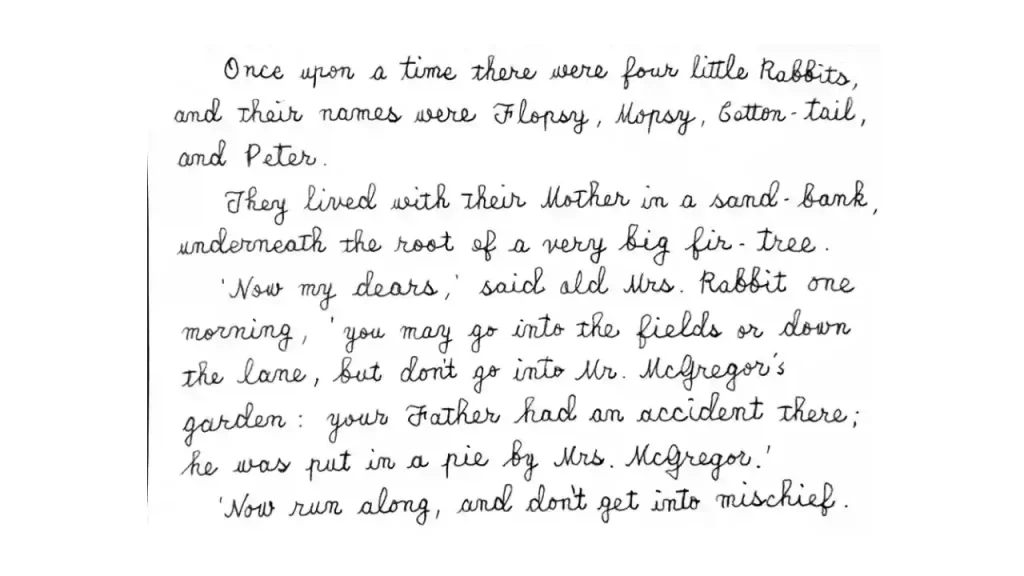 Once upon a time there were four little Rabbits,
and their names were Flopsy, Mopsy, Cotton-tail,
and Peter.
They lived with their Mother in a sand-bank,
underneath the root of a very big fir-tree.
'Now my dears,' said old Mrs. Rabbit one
morning, 'you may go into the fields or down
the lane, but don't go into Mr. McGregor's
garden: your Father had an accident there;
he was put in a pie by Mrs. McGregor.'
'Now run along, and don't get into mischief.